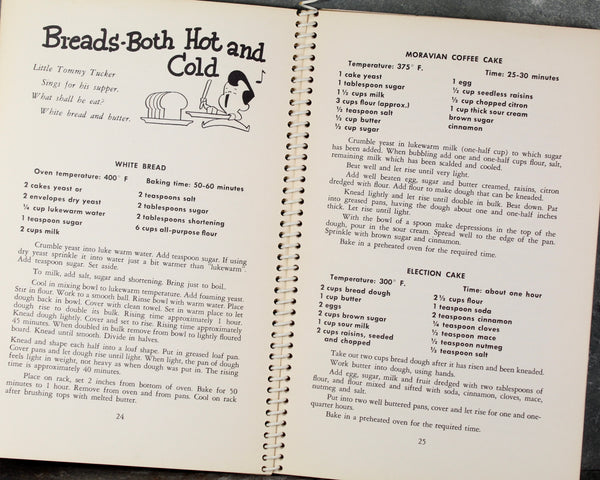 Breads-Both Hot and
Cold
Little Tommy Tucker
Sings for his supper.
What shall he eat?
White bread and butter.
WHITE BREAD
Oven temperature: 400° F
Baking time: 50-60 minutes
2 cakes yeast or
2 envelopes dry yeast
¼ cup lukewarm water
1 teaspoon sugar
2 cups milk
2 teaspoons salt
2 tablespoons sugar
2 tablespoons shortening
6 cups all-purpose flour
Crumble yeast into luke warm water. Add teaspoon sugar. If using
dry yeast sprinkle it into water just a bit warmer than "lukewarm".
Add teaspoon sugar. Set aside.
To milk, add salt, sugar and shortening. Bring just to boil.
Cool in mixing bowl to lukewarm temperature. Add foaming yeast.
Stir in flour. Work to a smooth ball. Rinse bowl with warm water. Place
dough back in bowl. Cover with clean towel. Set in warm place to let
dough rise to double its bulk. Rising time approximately 1 hour.
Knead dough lightly. Cover and set to rise. Rising time approximately
45 minutes. When doubled in bulk remove from bowl to lightly floured
board. Knead until smooth. Divide in halves.
Knead and shape each half into a loaf shape. Put in greased loaf pan.
Cover pans and let dough rise until light. When light, the pan of dough
feels light in weight, not heavy as when dough was put in. The rising
time is approximately 40 minutes.
Place on rack, set 2 inches from bottom of oven. Bake for 50
minutes to 1 hour. Remove from oven and from pans. Cool on rack
after brushing tops with melted butter.
24
MORAVIAN COFFEE CAKE
Temperature: 375° F.
Time: 25-30 minutes
1 cake yeast
1 tablespoon sugar
1½ cups milk
3 cups flour (approx.)
½ teaspoon salt
½ cup butter
½ cup sugar
1 egg
½ cup seedless raisins
½ cup chopped citron
1 cup thick sour cream
brown sugar
cinnamon
Crumble yeast in lukewarm milk (one-half cup) to which sugar
has been added. When bubbling add one and one-half cups flour, salt,
remaining milk which has been scalded and cooled.
Beat well and let rise until very light.
Add well beaten egg, sugar and butter creamed, raisins, citron
dredged with flour. Add flour to make dough that can be kneaded.
Knead lightly and let rise until double in bulk. Beat down. Pat
into greased pans, having the dough about one and one-half inches
thick. Let rise until light.
With the bowl of a spoon make depressions in the top of the
dough, pour in the sour cream. Spread well to the edge of the pan.
Sprinkle with brown sugar and cinnamon.
Bake in a preheated oven for the required time.
ELECTION CAKE
Temperature: 300° F.
Time: about one hour
2 cups bread dough
1 cup butter
2 eggs
2 cups brown sugar
1 cup sour milk
2 cups raisins, seeded
and chopped
2½ cups flour
1 teaspoon soda
2 teaspoons cinnamon
¼ teaspoon cloves
½ teaspoon mace
½ teaspoon nutmeg
½ teaspoon salt
Take out two cups bread dough after it has risen and been kneaded.
Work butter into dough, using hands.
Add egg, sugar, milk and fruit dredged with two tablespoons of
flour, and flour mixed and sifted with soda, cinnamon, cloves, mace,
nutmeg and salt.
Put into two well buttered pans, cover and let rise for one and one-
quarter hours.
Bake in a preheated oven for the required time.
25